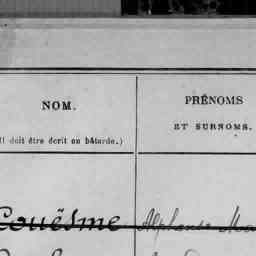 NOM.
Il doit être écrit en bâtarde.)
PRÉNOMS
ET SURNOMS.
Couësme Alphonse Ma